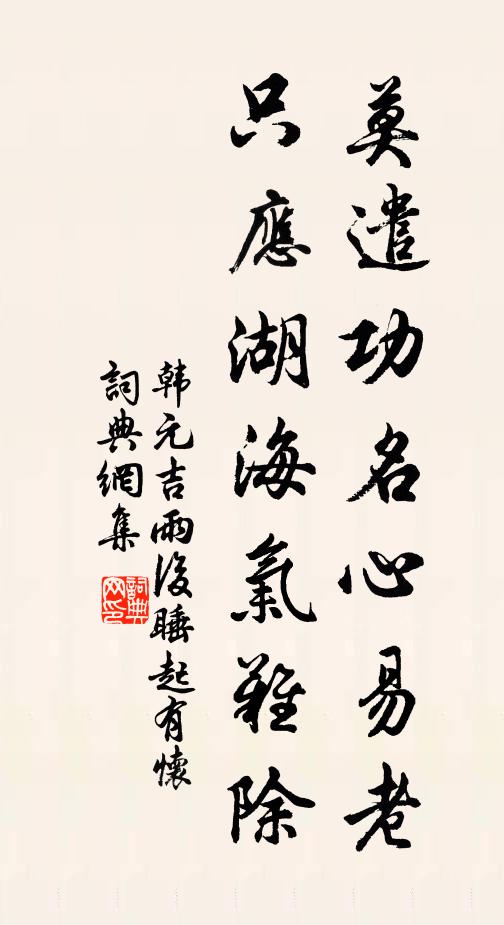 莫遣功名心易老
只應湖海氣難除
韩元吉雨後睡起有懷
詞典網集
詞典網印